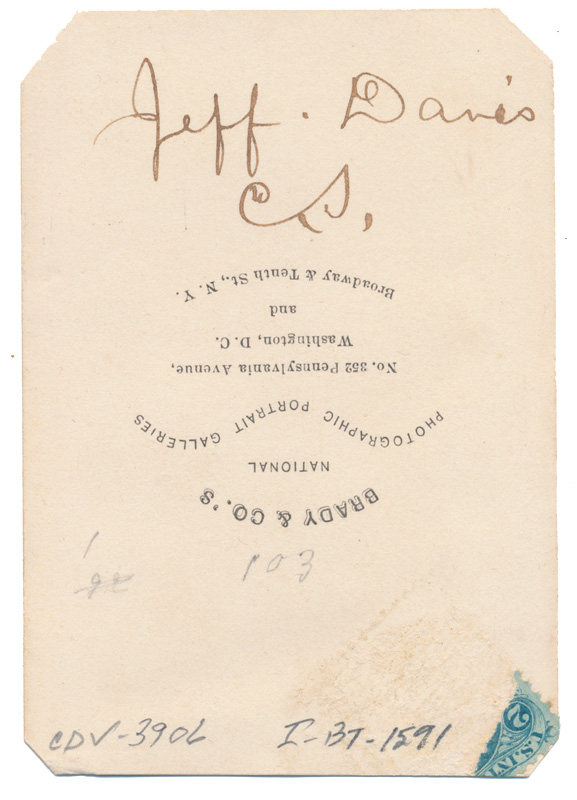 Jeff. Davis
C.S.
BRADY & CO.'S
NATIONAL
PHOTOGRAPHIC PORTRAIT GALLERIES
No. 352 Pennsylvania Avenue,
Washington, D. C.
and
Broadway & Tenth St., N. Y.
1
103
CDV-3906
I-BT-1591
2
U.S. INT